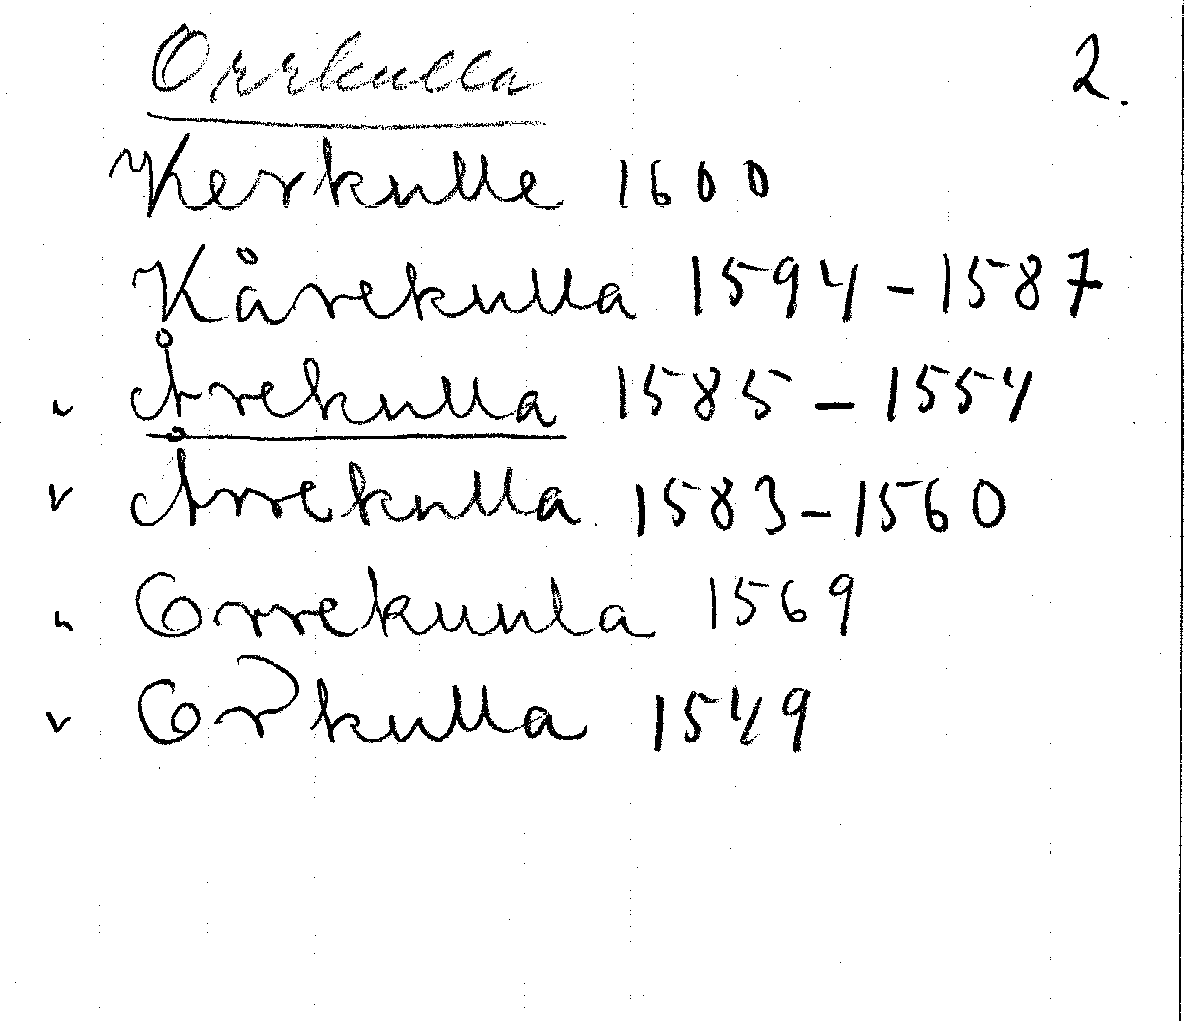 Orrkulla 2.
Kerkulle 1600
Kårekulla 1594-1587
Årekulla 1585-1554
v Årrekulla 1583-1560
Orrekunla 1569
v Orkulla 1549